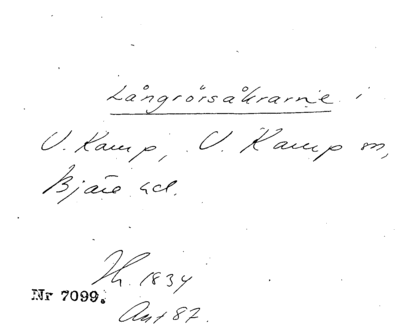 Långrörsåkrarne i
V. Karup, V. Karup sn,
Bjäre hd.
Th. 1834
Nr 7099.
Ant 87.